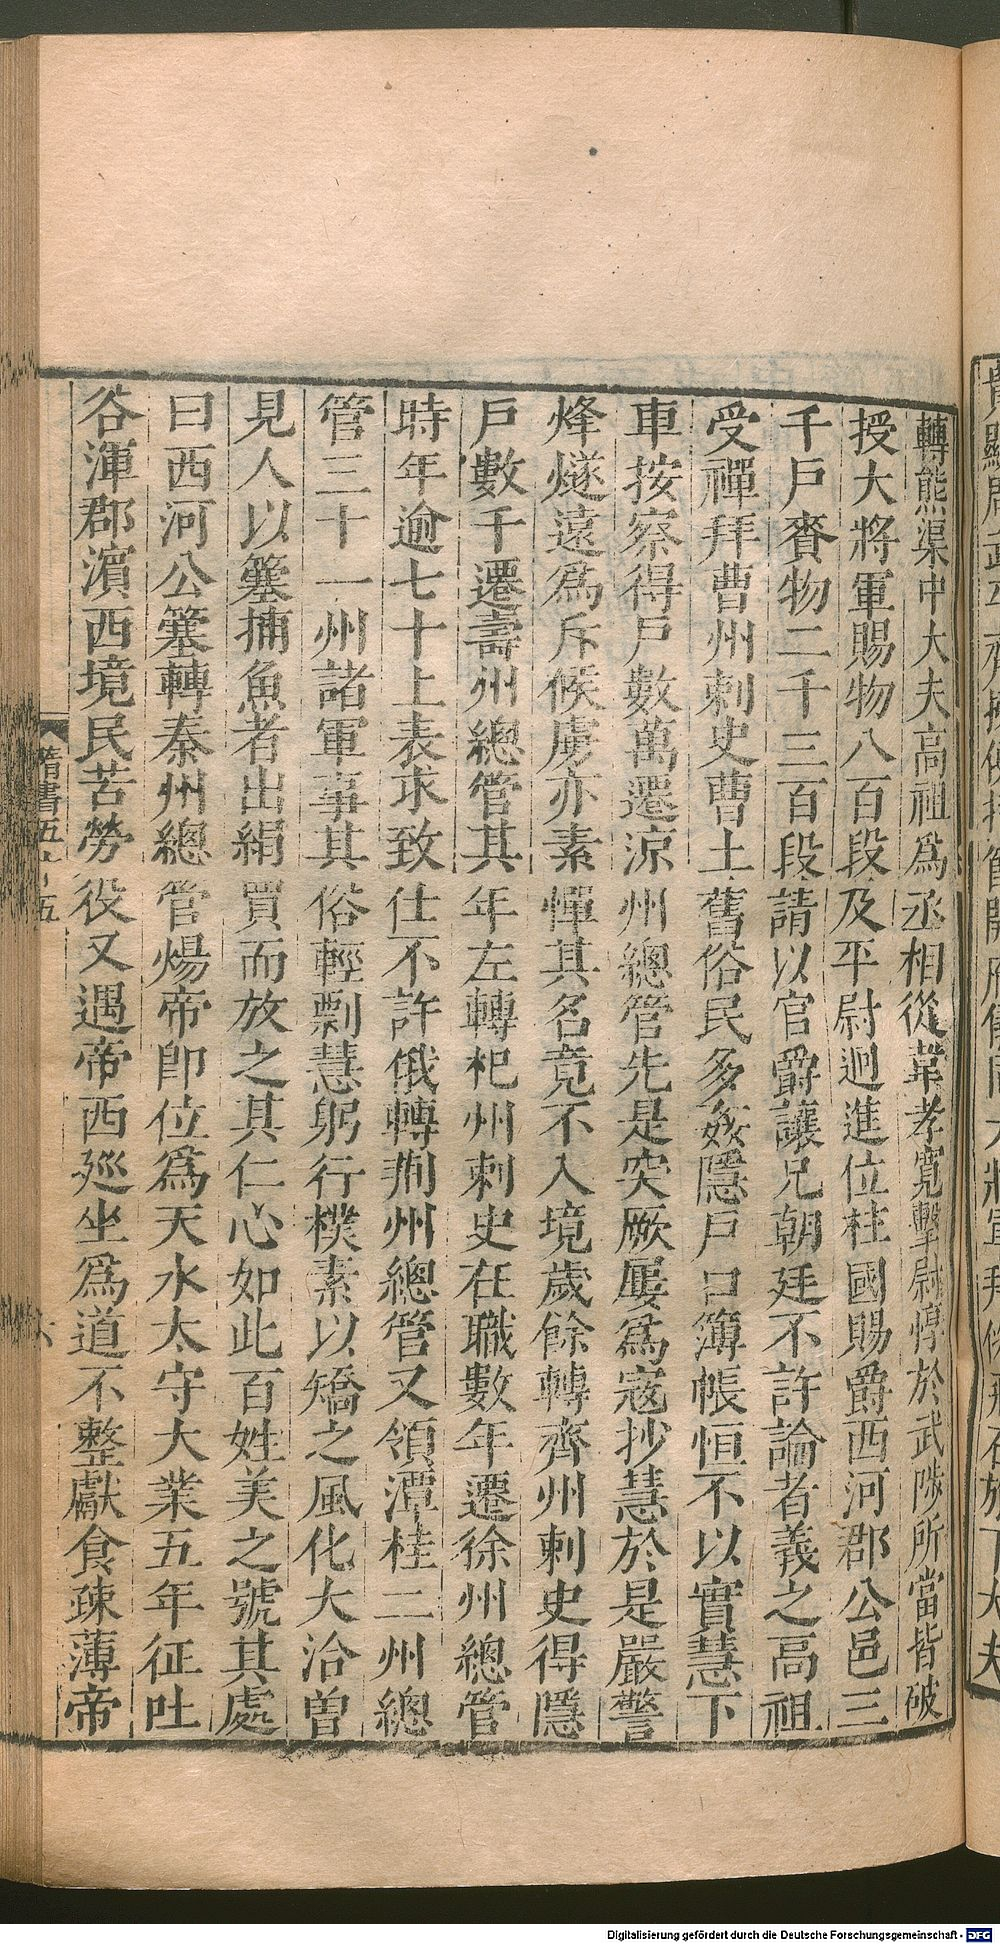 轉熊渠中大夫高祖爲丞相從韋孝寬擊尉惇於武陟所當皆破
授大將軍賜物八百段及平尉迥進位柱國賜爵西河郡公邑三
千戸賚物二千三百段請以官爵讓兄朝廷不許論者義之高祖
受禪拜曹州刺史曹土舊俗民多姦隱戸口簿帳恒不以實慧下
車按察得戸數萬遷涼州總管先是突厥屢爲寇抄慧於是嚴警
烽燧遠爲斥候虜亦素憚其名竟不入境歲餘轉齊州刺史得隱
戸數千遷壽州總管其年左轉杞州刺史在職數年遷徐州總管
時年逾七十上表求致仕不許俄轉荊州總管又領潭桂二州總
管三十一州諸軍事其俗輕剽慧躬行樸素以矯之風化大洽曽
見人以簺捕魚者出絹買而放之其仁心如此百姓美之號其處
曰西河公簺轉秦州總管煬帝卽位爲天水太守大業五年征吐
谷渾郡濵西境民苦勞役又遇帝西廵坐爲道不整獻食疎薄帝
隋書五十五
六
Digitalisierung gefördert durch die Deutsche Forschungsgemeinschaft - DFG